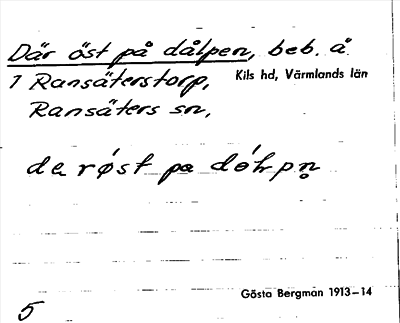 Där öst på dålpen, beb. å
1 Ransäterstorp, Kils hd, Värmlands län
Ransäters sn,
da røst pa dólrpn̥
Gösta Bergman 1913–14
5